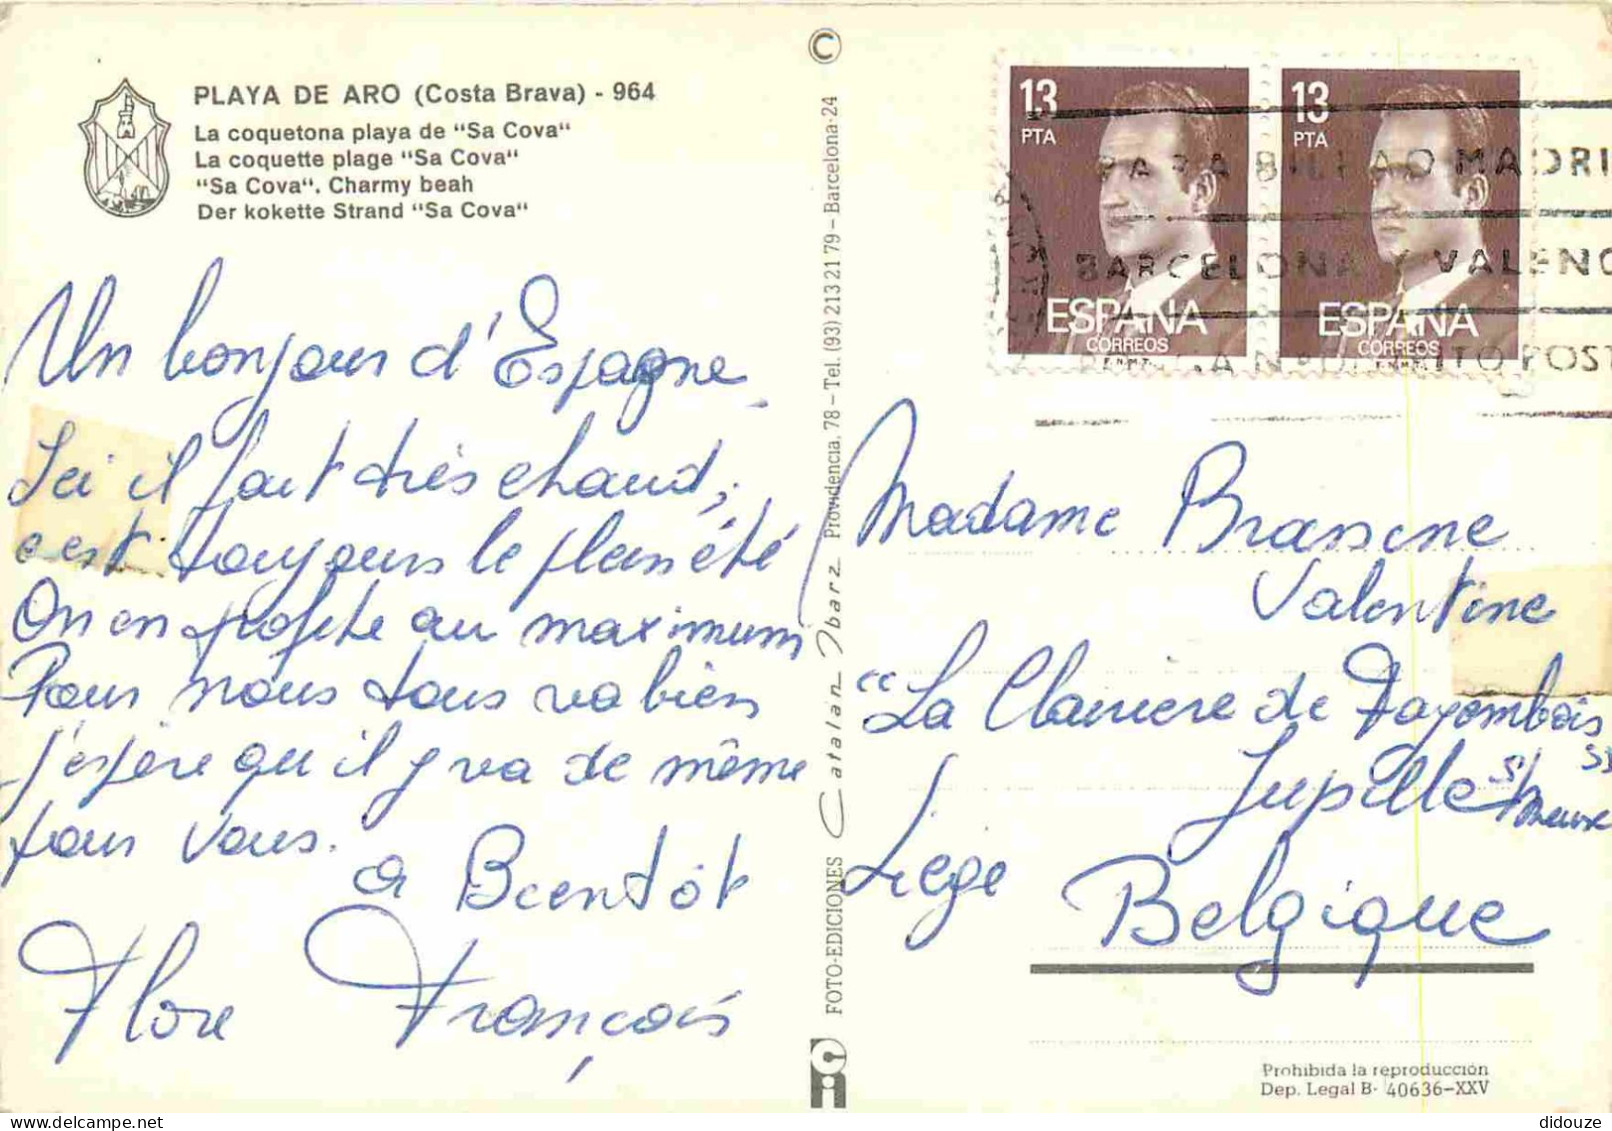 PLAYA DE ARO (Costa Brava) - 964
La coquetona playa de "Sa Cova"
La coquette plage "Sa Cova"
"Sa Cova". Charmy beah
Der kokette Strand "Sa Cova"
Un bonjour d'Espagne.
Ici il fait très chaud,
c'est toujours le plein été
On en profite au maximum
Pour nous tous va bien
j'espère qu'il y va de même
pour vous.
a Bientôt
Flore François
©
FOTO-EDICIONES Catalan Ibarz Providencia, 78 – Tel. (93) 213 21 79 – Barcelona-24
13
PTA
ESPAÑA
CORREOS
F.N.M.T.
13
PTA
ESPAÑA
CORREOS
F.N.M.T.
PARA BILBAO MADRI
BARCELONA Y VALENC
POST
Madame
Valentine
"La Clairiere de Fayembois
Jupille s/ Meuse
Liege
Belgique
Prohibida la reproducción
Dep. Legal B- 40636-XXV
didouze